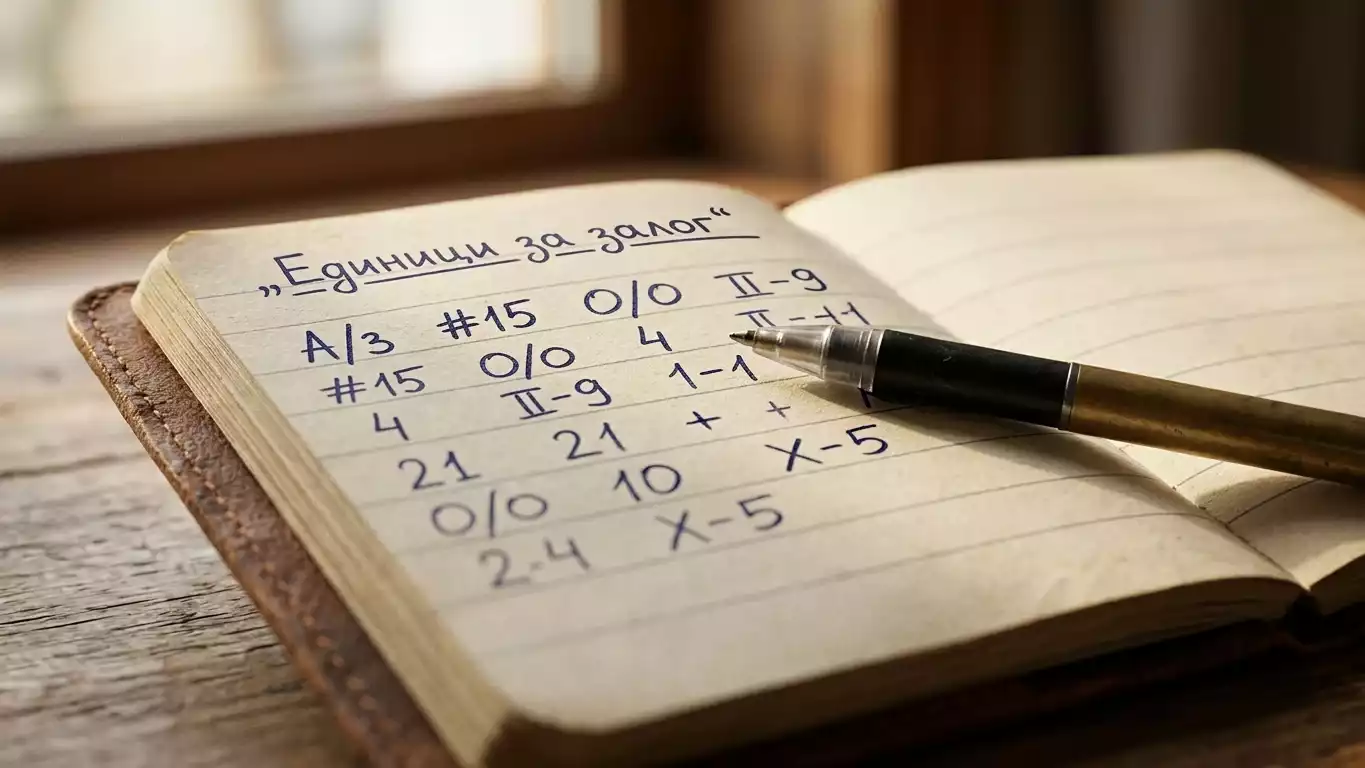 „Единици за залог“
А/з #15 0/0 II-9
#15 0/0 4 II-11
4 II-9 1-1
21 21 + +
0/0 10 X-5
2.4 X-5